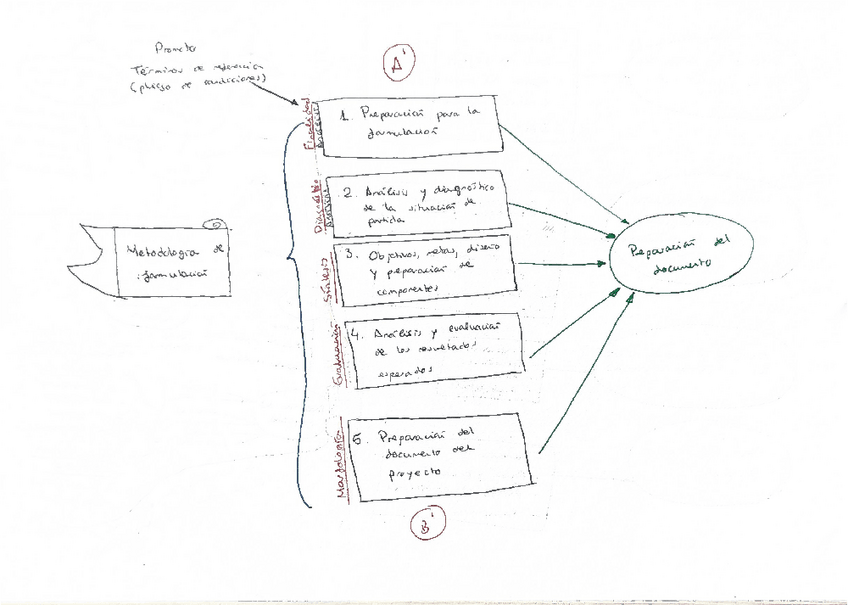 Promotor
Términos de referencia
(pliego de condiciones)
A'
1. Preparación para la
formulación
Diagnóstico
2. Análisis y diagnóstico
de la situación de
partida
Síntesis
3. Objetivos, metas, diseño
y preparación de
componentes
Evaluación
4. Análisis y evaluación
de los resultados
esperados
Morfología
5. Preparación del
documento del
proyecto
B'
Metodología de
formulación
Preparación del
documento